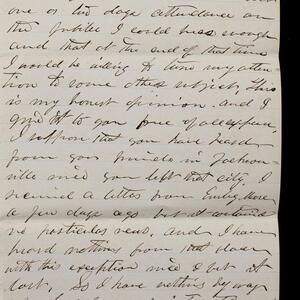 one or two days attendance on
the Jubilee I could hear enough
and that at the end of that time
I would be willing to turn my atten
tion to some other subject, This
is my honest opinion. and I
give it to you free of
I suppose that you have heard
from your friends in Jackson-
ville since you left that city. I
received a letter from Emily More
a few days ago but it contained
no particular news, and I have
heard nothing from that place
with this exception since I left it
last, So I have nothing by way